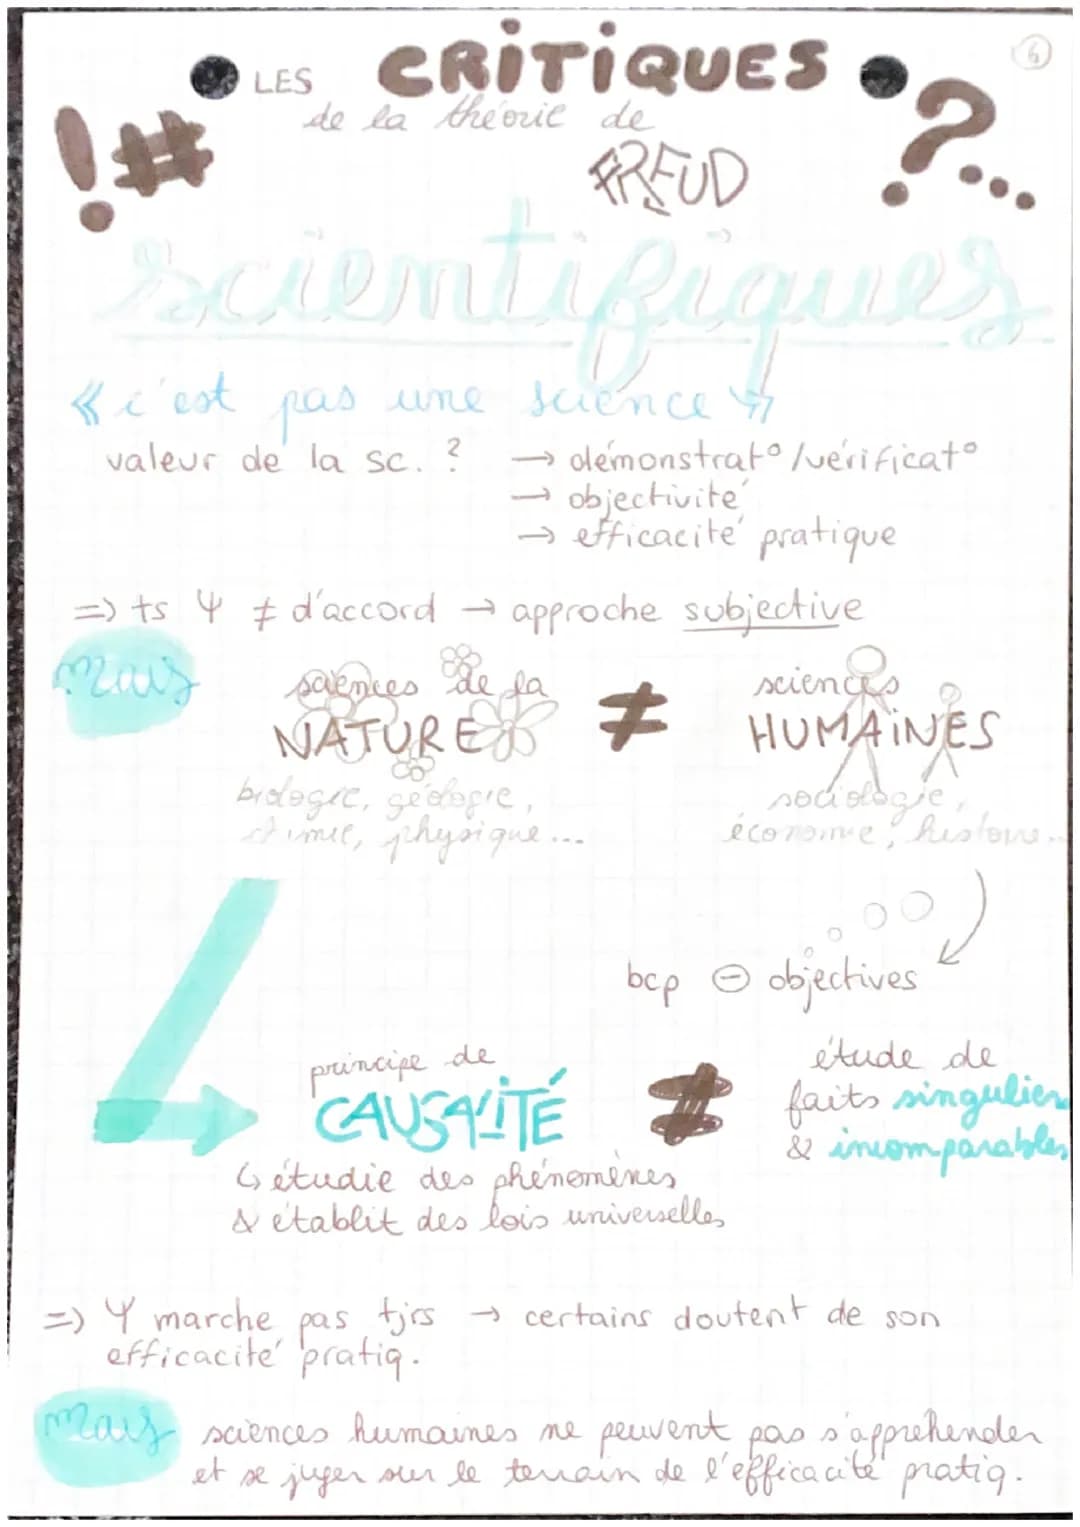 6
LES CRITIQUES
de la théorie de
FREUD
!# ?...
scientifiques
« c'est pas une science »
valeur de la sc. ? → démonstrat° /vérificat°
→ objectivité
→ efficacité pratique
=> ts Ψ ≠ d'accord → approche subjective
mais
sciences de la
NATURE
≠
sciences
HUMAINES
biologie, géologie,
chimie, physique...
sociologie,
économie, histoire...
bcp ⊖ objectives
principe de
CAUSALITÉ
↳ étudie des phénomènes
& établit des lois universelles
≠
étude de
faits singuliers
& incomparables
=> Ψ marche pas tjrs → certains doutent de son
efficacité pratiq.
mais sciences humaines ne peuvent pas s'appréhender
et se juger sur le terrain de l'efficacité pratiq.